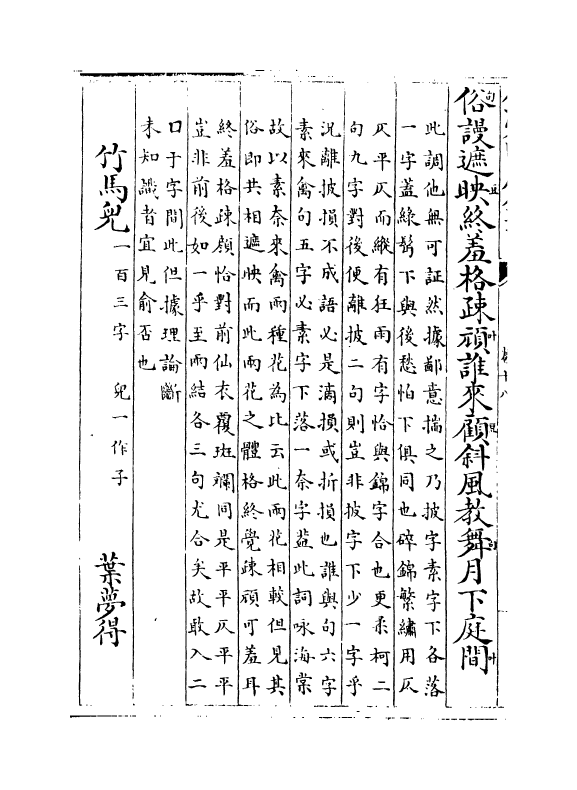 俗謾遮映終羞格疎頑誰來顧斜風教舞月下庭間
此調他無可証然據鄙意揣之乃披字素字下各落
一字蓋綠鬅下與後愁怕下俱同也碎錦繁繡用仄
仄平仄而縱有狂雨有字恰與錦字合也更柔柯二
句九字對後便離披二句則豈非披字下少一字乎
況離披損不成語必是滴損或折損也誰與句六字
素來禽句五字必素字下落一奈字蓋此詞咏海棠
故以素奈來禽兩種花為比云此兩花相較但見其
俗即共相遮映而此兩花之體格終覺疎頑可羞耳
終羞格疎頑恰對前仙衣覆斑斕同是平平仄平平
豈非前後如一乎至兩結各三句尤合矣故敢入二
口于字間此但據理論斷
未知識者宜見俞否也
竹馬兒 一百三字 兒一作子 葉夢得